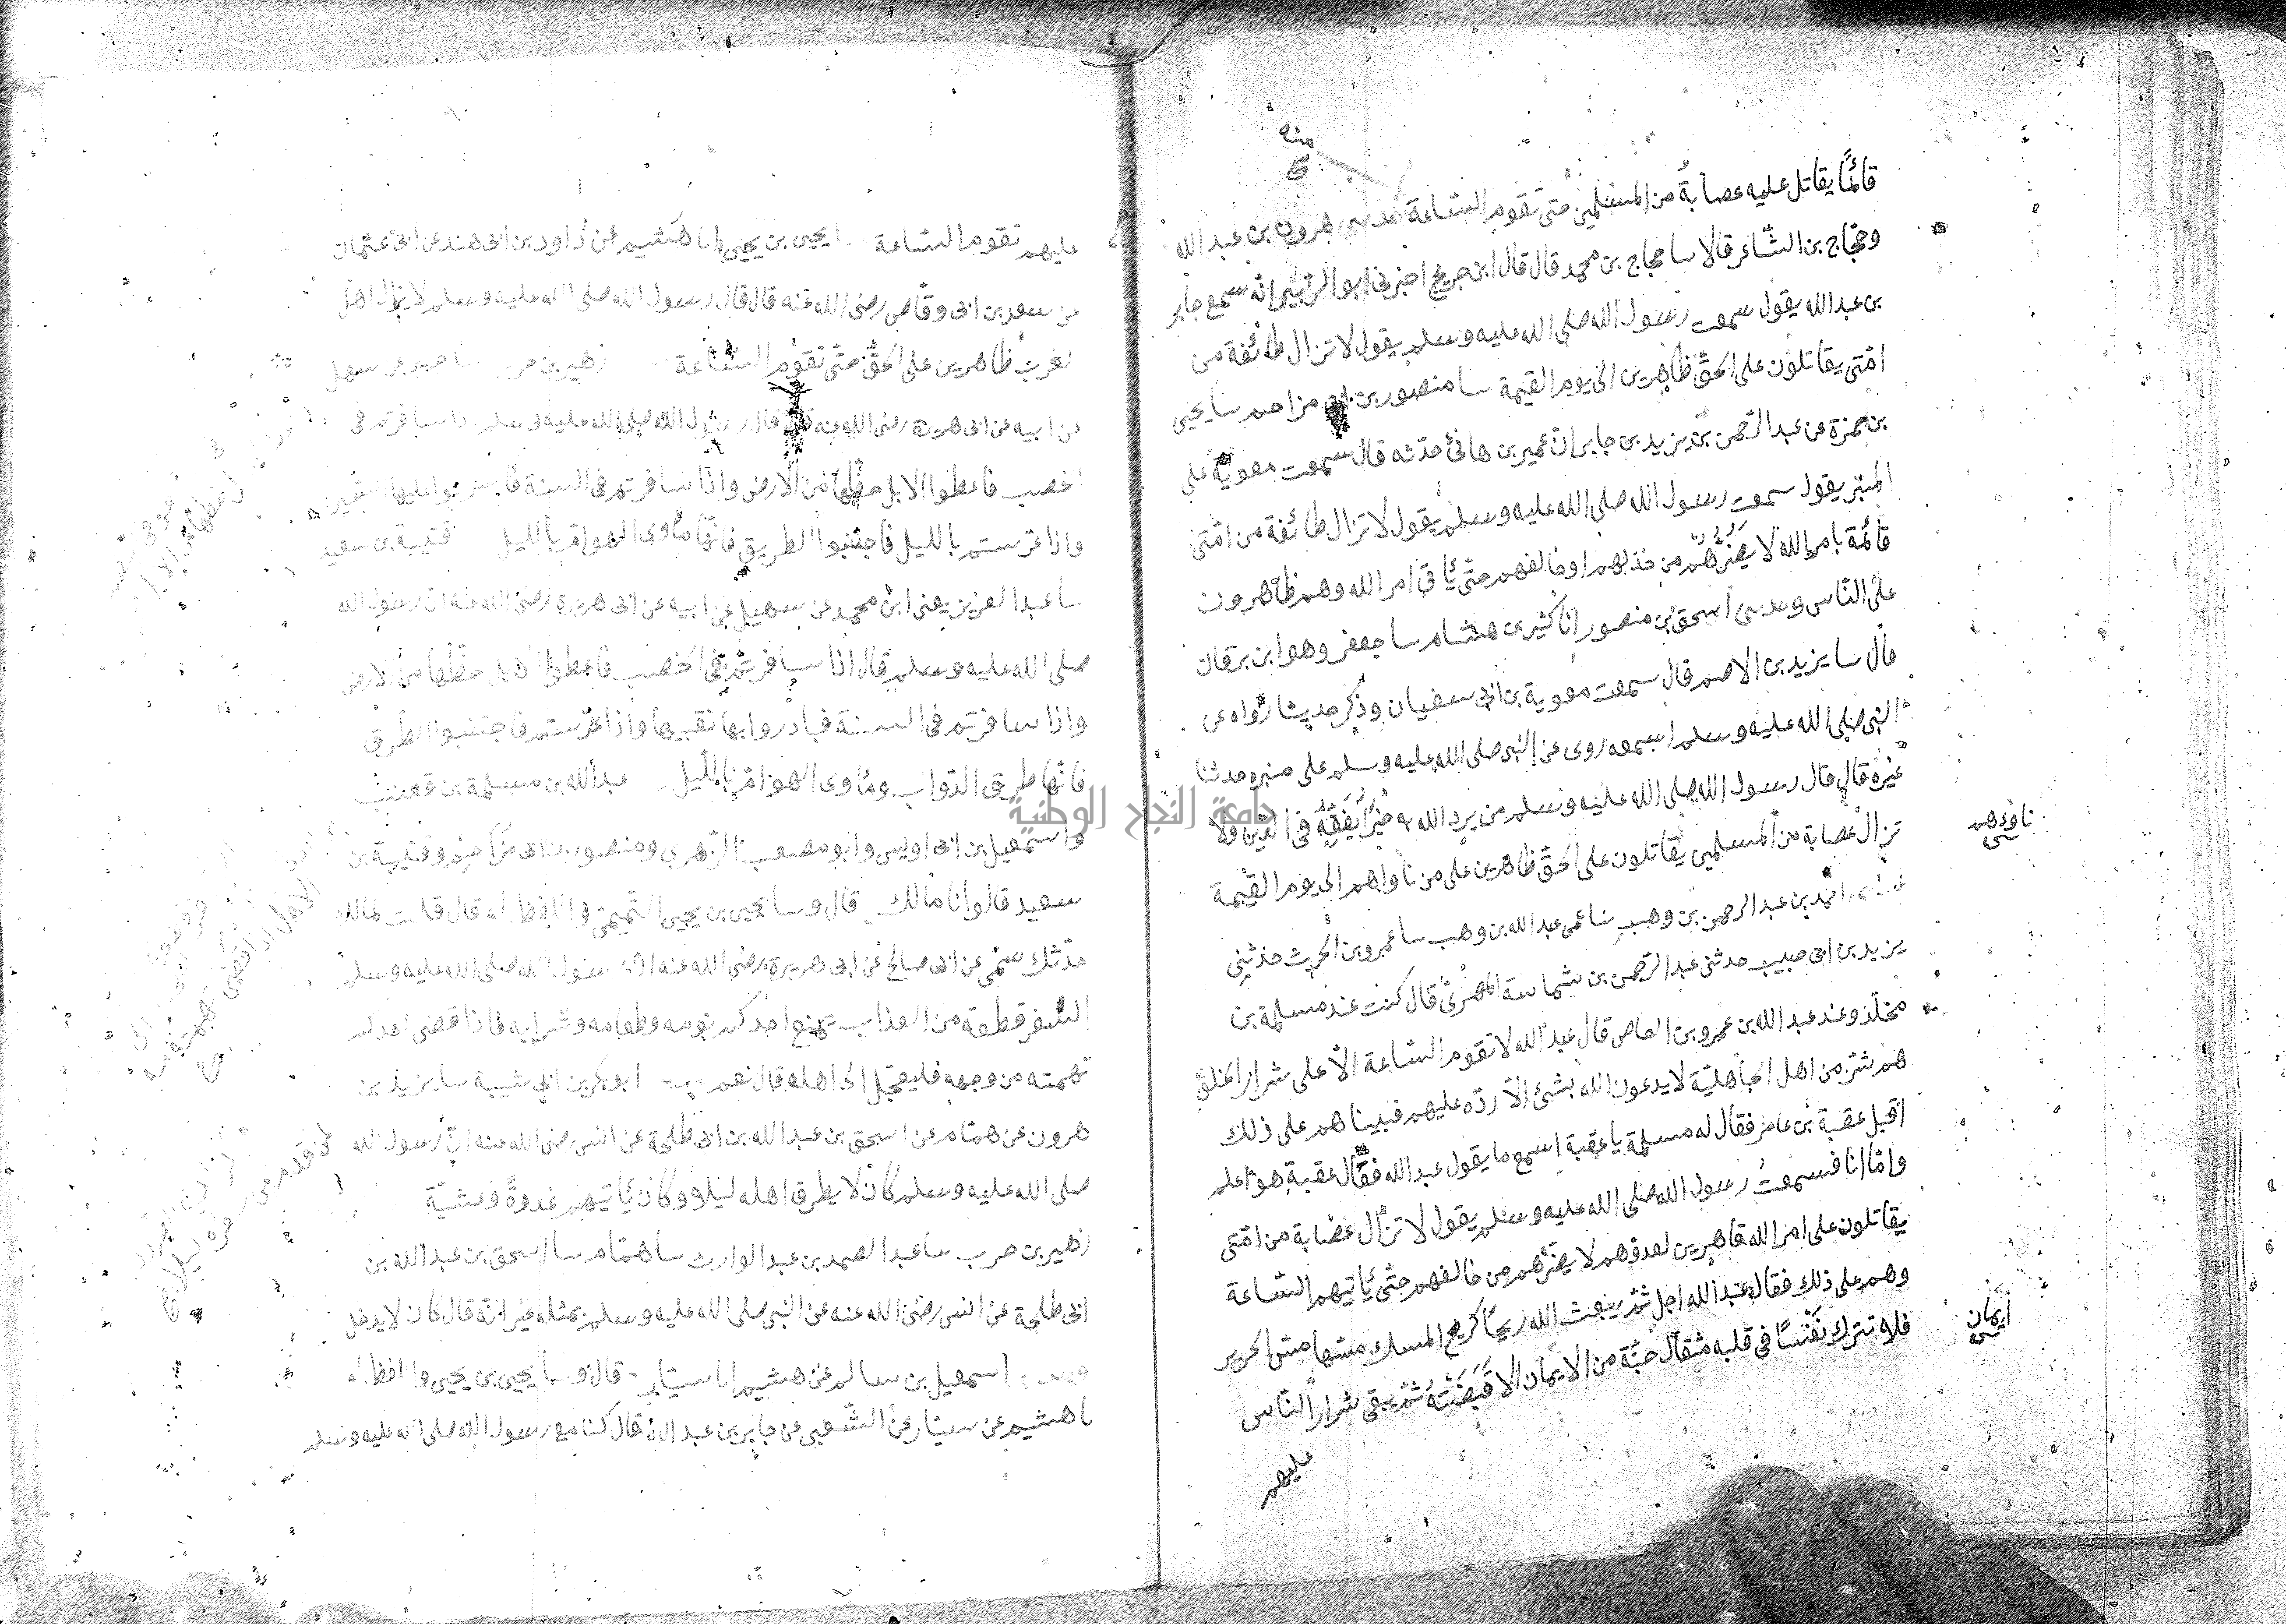 قائمًا يقاتل عليه عصابة من المسلمين حتى تقوم الساعة حدسى هرون بن عبد الله
وحجاج بن الشاعر قالا سا حجاج بن محمد قال قال ابن جريج اخبرنى ابو الزبير انه سمع جابر
بن عبد الله يقول سمعت رسول الله صلى الله عليه وسلم يقول لا تزال طائفة من
امتى يقاتلون على الحق ظاهرين الى يوم القيمة سا منصور بن ابى مزاحم سا يحيى
بن حمزة عن عبد الرحمن بن يزيد بن جابر ان عمير بن هانئ حدثه قال سمعت معوية على
المنبر يقول سمعت رسول الله صلى الله عليه وسلم يقول لا تزال طائفة من امتى
قائمة بامر الله لا يضرهم من خذلهم او خالفهم حتى يأتى امر الله وهم ظاهرون
على الناس وحدسى اسحق بن منصور انا كثير بن هشام سا جعفر وهو ابن برقان
قال سا يزيد بن الاصم قال سمعت معوية بن ابى سفيان وذكر حديثا رواه عن
النبى صلى الله عليه وسلم اسمعه روى عن النبى صلى الله عليه وسلم على منبره حدثنا
غيره قال قال رسول الله صلى الله عليه وسلم من يرد الله به خيرًا يفقهه فى الدين ولا
تزال عصابة من المسلمين يقاتلون على الحق ظاهرين على من ناواهم الى يوم القيمة
ناوءهم
احمد بن عبد الرحمن بن وهب سا عمى عبد الله بن وهب سا عمرو بن الحرث حدثنى
يزيد بن ابى حبيب حدثنى عبد الرحمن بن شماسة المهرى قال كنت عند مسلمة بن
مخلد وعند عبد الله بن عمرو بن العاص قال عبد الله لا تقوم الساعة الا على شرار الخلق
هم شر من اهل الجاهلية لا يدعون الله بشئ الا رده عليهم فبينا هم على ذلك
اقبل عقبة بن عامر فقال له مسلمة يا عقبة اسمع ما يقول عبد الله فقال عقبة هو اعلم
واما انا فسمعت رسول الله صلى الله عليه وسلم يقول لا تزال عصابة من امتى
يقاتلون على امر الله قاهرين لعدوهم لا يضرهم من خالفهم حتى تأتيهم الساعة
وهم على ذلك فقال عبد الله اجل ثم يبعث الله ريحًا كريح المسك مسها مس الحرير
فلا تترك نفسًا فى قلبه مثقال حبة من الايمان الا قبضته ثم يبقى شرار الناس
ايمان
عليهم
عليهم تقوم الساعة يحيى بن يحيى انا هشيم عن داود بن ابى هند عن ابى عثمان
عن سعد بن ابى وقاص رضى الله عنه قال قال رسول الله صلى الله عليه وسلم لا يزال اهل
الغرب ظاهرين على الحق حتى تقوم الساعة زهير بن حرب سا جرير عن سهيل
عن ابيه عن ابى هريرة رضى الله عنه قال قال رسول الله صلى الله عليه وسلم اذا سافرتم فى
الخصب فاعطوا الابل حظها من الارض واذا سافرتم فى السنة فاسرعوا عليها السير
واذا عرستم بالليل فاجتنبوا الطريق فانها مأوى الهوام بالليل قتيبة بن سعيد
سا عبد العزيز يعنى ابن محمد عن سهيل عن ابيه عن ابى هريرة رضى الله عنه ان رسول الله
صلى الله عليه وسلم قال اذا سافرتم فى الخصب فاعطوا الابل حظها من الارض
واذا سافرتم فى السنة فبادروا بها نقيها واذا عرستم فاجتنبوا الطرق
فانها طرق الدواب ومأوى الهوام بالليل عبد الله بن مسلمة بن قعنب
واسمعيل بن ابى اويس وابو مصعب الزهرى ومنصور بن ابى مزاحم وقتيبة بن
سعيد قالوا نا مالك قال وسا يحيى بن يحيى التميمى واللفظ له قال قلت لمالك
حدثك سمى عن ابى صالح عن ابى هريرة رضى الله عنه ان رسول الله صلى الله عليه وسلم
السفر قطعة من العذاب يمنع احدكم نومه وطعامه وشرابه فاذا قضى احدكم
نهمته من وجهه فليعجل الى اهله قال نعم ابو بكر بن ابى شيبة سا يزيد بن
هرون عن همام عن اسحق بن عبد الله بن ابى طلحة عن انس رضى الله عنه ان رسول الله
صلى الله عليه وسلم كان لا يطرق اهله ليلا وكان يأتيهم غدوةً وعشية
زهير بن حرب سا عبد الصمد بن عبد الوارث سا همام سا اسحق بن عبد الله بن
ابى طلحة عن انس رضى الله عنه عن النبى صلى الله عليه وسلم بمثله غير انه قال كان لا يدخل
اسمعيل بن سالم عن هشيم انا سيار قال وسا يحيى بن يحيى واللفظ له
نا هشيم عن سيار عن الشعبى عن جابر بن عبد الله قال كنا مع رسول الله صلى الله عليه وسلم
جامعة النجاح الوطنية